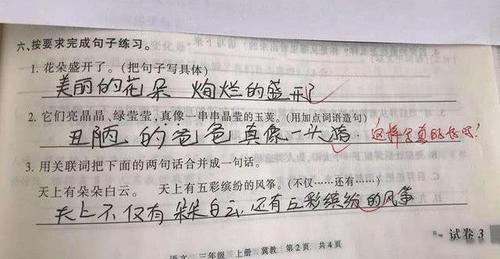 六、按要求完成句子练习。
1. 花朵盛开了。(把句子写具体)
美丽的花朵 绚烂的盛开了
2. 它们亮晶晶、绿莹莹、真像一串串晶莹的玉荚。(用加点词语造句)
丑陋的爸爸真像一头猪. 这样
3. 用关联词把下面的两句话合并成一句话。
天上有朵朵白云。 天上有五彩缤纷的风筝。(不仅……还有……)
天上不仅有朵朵白云 还有五彩缤纷的风筝
试卷 3
语文 三年级 上册 冀教 第 2 页 共 4 页